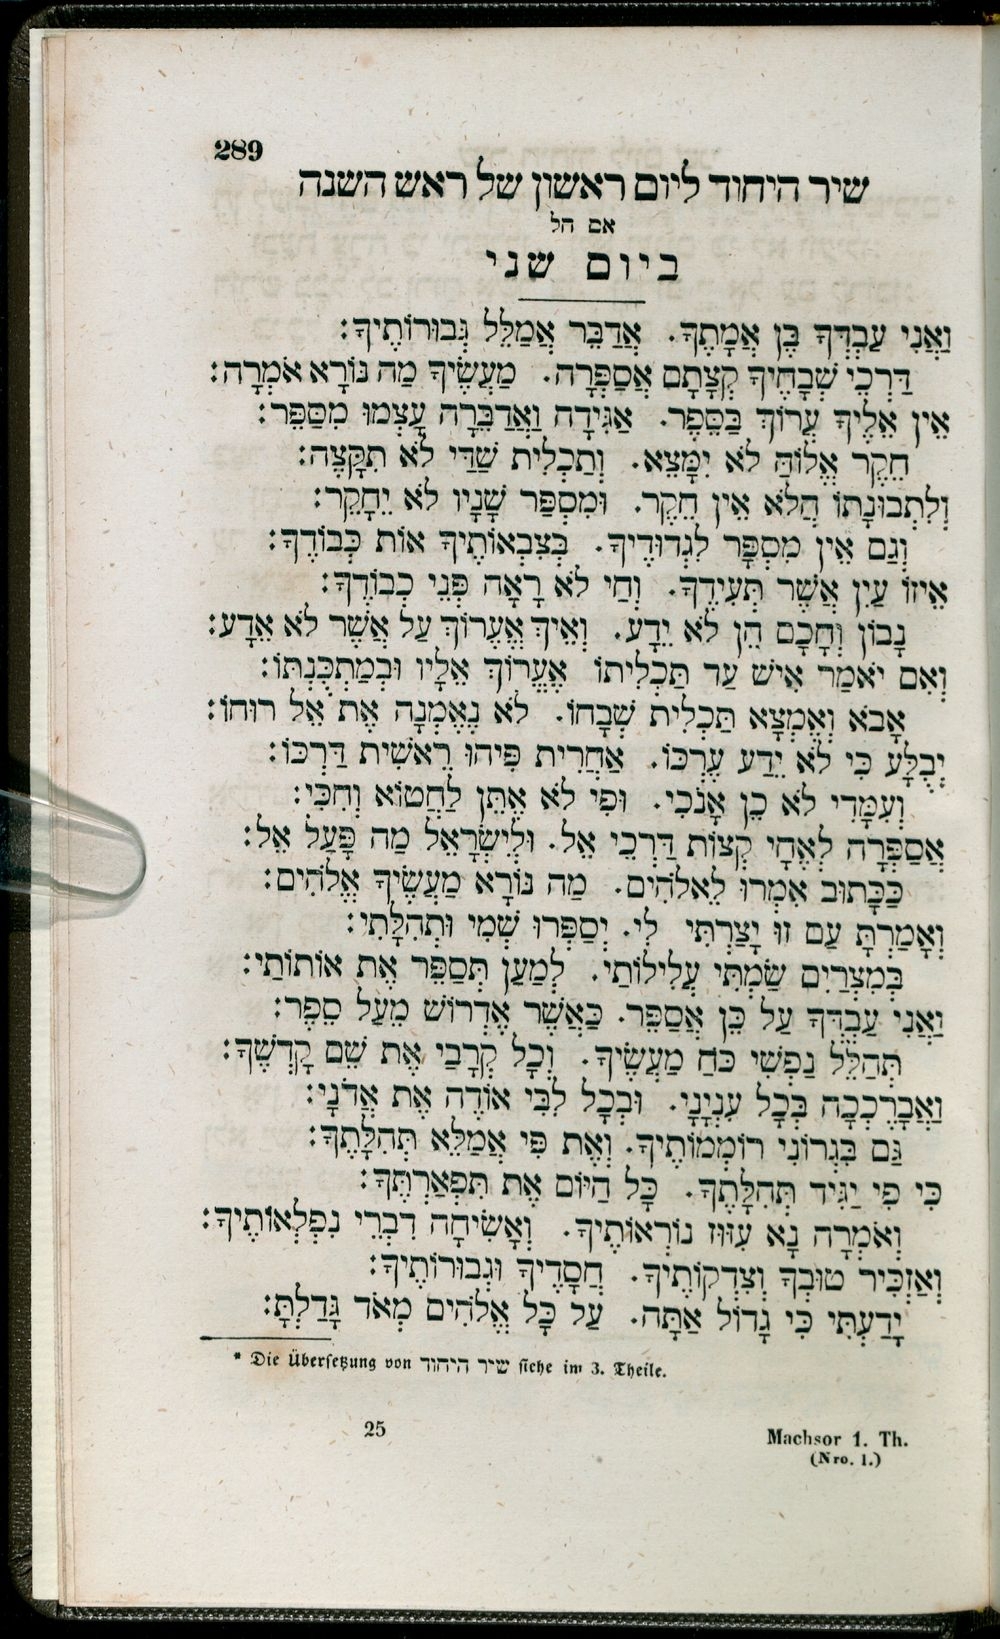 289
שיר היחוד ליום ראשון של ראש השנה
אם חל
ביום שני
וַאֲנִי עַבְדְּךָ בֶּן אֲמָתֶךָ. אֲדַבֵּר אֲמַלֵּל גְּבוּרוֹתֶיךָ:
דַּרְכֵי שְׁבָחֶיךָ קְצָתָם אֲסַפְּרָה. מַעֲשֶׂיךָ מַה נּוֹרָא אֹמְרָה:
אֵין אֵלֶיךָ עֲרוֹךְ בַּסֵּפֶר. אַגִּידָה וַאֲדַבֵּרָה עָצְמוּ מִסַּפֵּר:
חֵקֶר אֱלוֹהַּ לֹא יִמָּצֵא. וְתַכְלִית שַׁדַּי לֹא תִקָּצֶה:
וְלִתְבוּנָתוֹ הֲלֹא אֵין חֵקֶר. וּמִסְפַּר שָׁנָיו לֹא יֵחָקֵר:
וְגַם אֵין מִסְפָּר לִגְדוּדֶיךָ. בְּצִבְאוֹתֶיךָ אוֹת כְּבוֹדֶךָ:
אֵיזוֹ עַיִן אֲשֶׁר תְּעִידֶךָ. וְחַי לֹא רָאָה פְּנֵי כְבוֹדֶךָ:
נָבוֹן וְחָכָם הֵן לֹא יֵדָע. וְאֵיךְ אֶעֱרוֹךְ עַל אֲשֶׁר לֹא אֵדָע:
וְאִם יֹאמַר אִישׁ עַד תַּכְלִיתוֹ אֶעֱרוֹךְ אֵלָיו וּבְמַתְכֻּנְתּוֹ:
אָבֹא וְאֶמְצָא תַּכְלִית שְׁבָחוֹ. לֹא נֶאֶמְנָה אֶת אֵל רוּחוֹ:
יְבֻלָּע כִּי לֹא יֵדַע עֶרְכּוֹ. אַחֲרִית פִּיהוּ רֵאשִׁית דַּרְכּוֹ:
וְעִמָּדִי לֹא כֵן אָנֹכִי. וּפִי לֹא אֶתֵּן לַחֲטוֹא וְחִכִּי:
אֲסַפְּרָה לְאֶחָי קְצוֹת דַּרְכֵי אֵל. וּלְיִשְׂרָאֵל מַה פָּעַל אֵל:
כַּכָּתוּב אִמְרוּ לֵאלֹהִים. מַה נּוֹרָא מַעֲשֶׂיךָ אֱלֹהִים:
וְאָמַרְתָּ עַם זוּ יָצַרְתִּי לִי. יְסַפְּרוּ שְׁמִי וּתְהִלָּתִי:
בְּמִצְרַיִם שַׂמְתִּי עֲלִילוֹתַי. לְמַעַן תְּסַפֵּר אֶת אוֹתוֹתַי:
וַאֲנִי עַבְדְּךָ עַל כֵּן אֲסַפֵּר. כַּאֲשֶׁר אֶדְרוֹשׁ מֵעַל סֵפֶר:
תְּהַלֵּל נַפְשִׁי כֹּחַ מַעֲשֶׂיךָ. וְכָל קְרָבַי אֶת שֵׁם קָדְשֶׁךָ:
וַאֲבָרֶכְכָה בְּכָל עִנְיָנָי. וּבְכָל לִבִּי אוֹדֶה אֶת אֲדֹנָי:
גַּם בִּגְרוֹנִי רוֹמְמוֹתֶיךָ. וְאֶת פִּי אֲמַלֵּא תְּהִלָּתֶךָ:
כִּי פִי יַגִּיד תְּהִלָּתֶךָ. כָּל הַיּוֹם אֶת תִּפְאַרְתֶּךָ:
וְאֹמְרָה נָא עִזּוּז נוֹרְאוֹתֶיךָ. וְאָשִׂיחָה דִבְרֵי נִפְלְאוֹתֶיךָ:
וְאַזְכִּיר טוּבְךָ וְצִדְקוֹתֶיךָ. חֲסָדֶיךָ וּגְבוּרוֹתֶיךָ:
יָדַעְתִּי כִּי גָדוֹל אַתָּה. עַל כָּל אֱלֹהִים מְאֹד גָּדַלְתָּ:
* Die Übersetzung von שיר היחוד siehe im 3. Theile.
25
Machsor 1. Th.
(Nro. 1.)